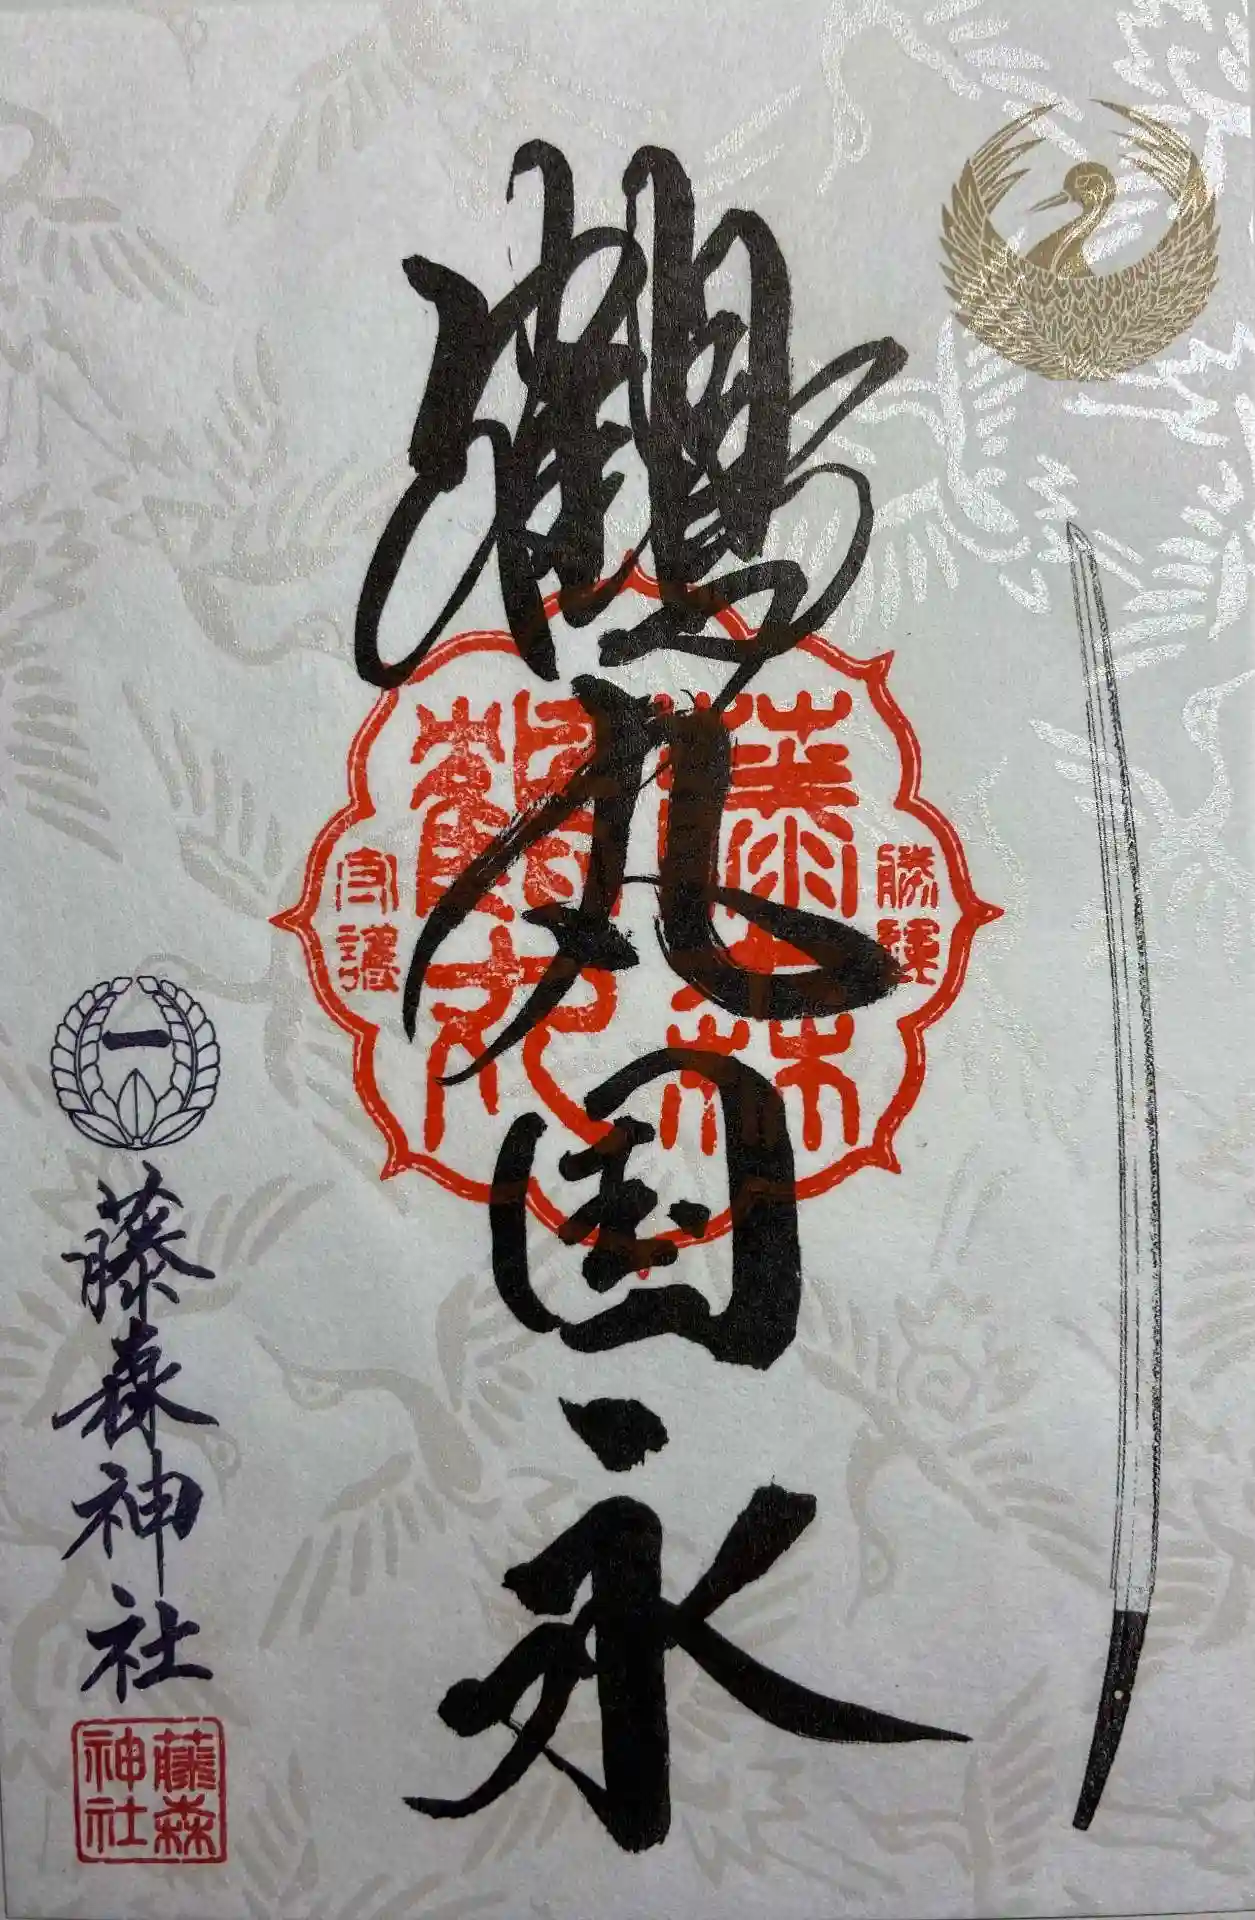 勝運
藤森
鶴丸
守護
鶴丸国永
一
藤森神社
藤森
神社